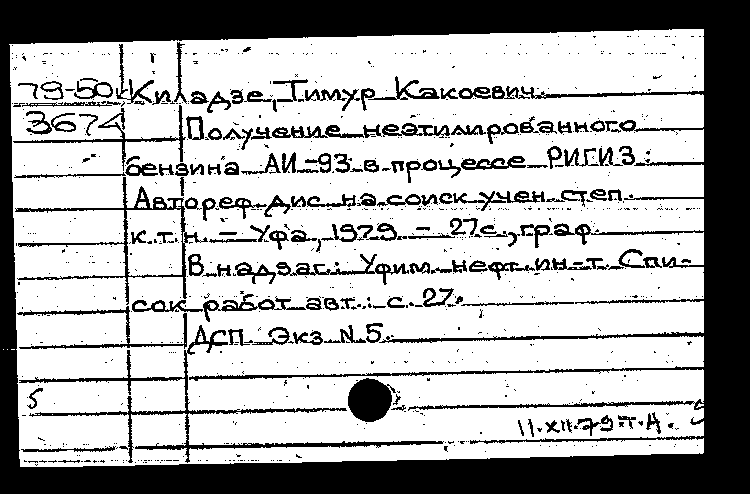 79-50 Киладзе, Тимур Какоевич.
3674 Получение неэтилированного
бензина АИ-93 в процессе РИГИЗ:
Автореф. дис. на соиск. учен. степ.
к.т.н. - Уфа, 1979. - 27с., граф.
В надзаг.: Уфим. нефт. ин-т. Спи-
сок работ авт.: с. 27.
ДСП. Экз N.5.
5
11.XII.79.Т.А.